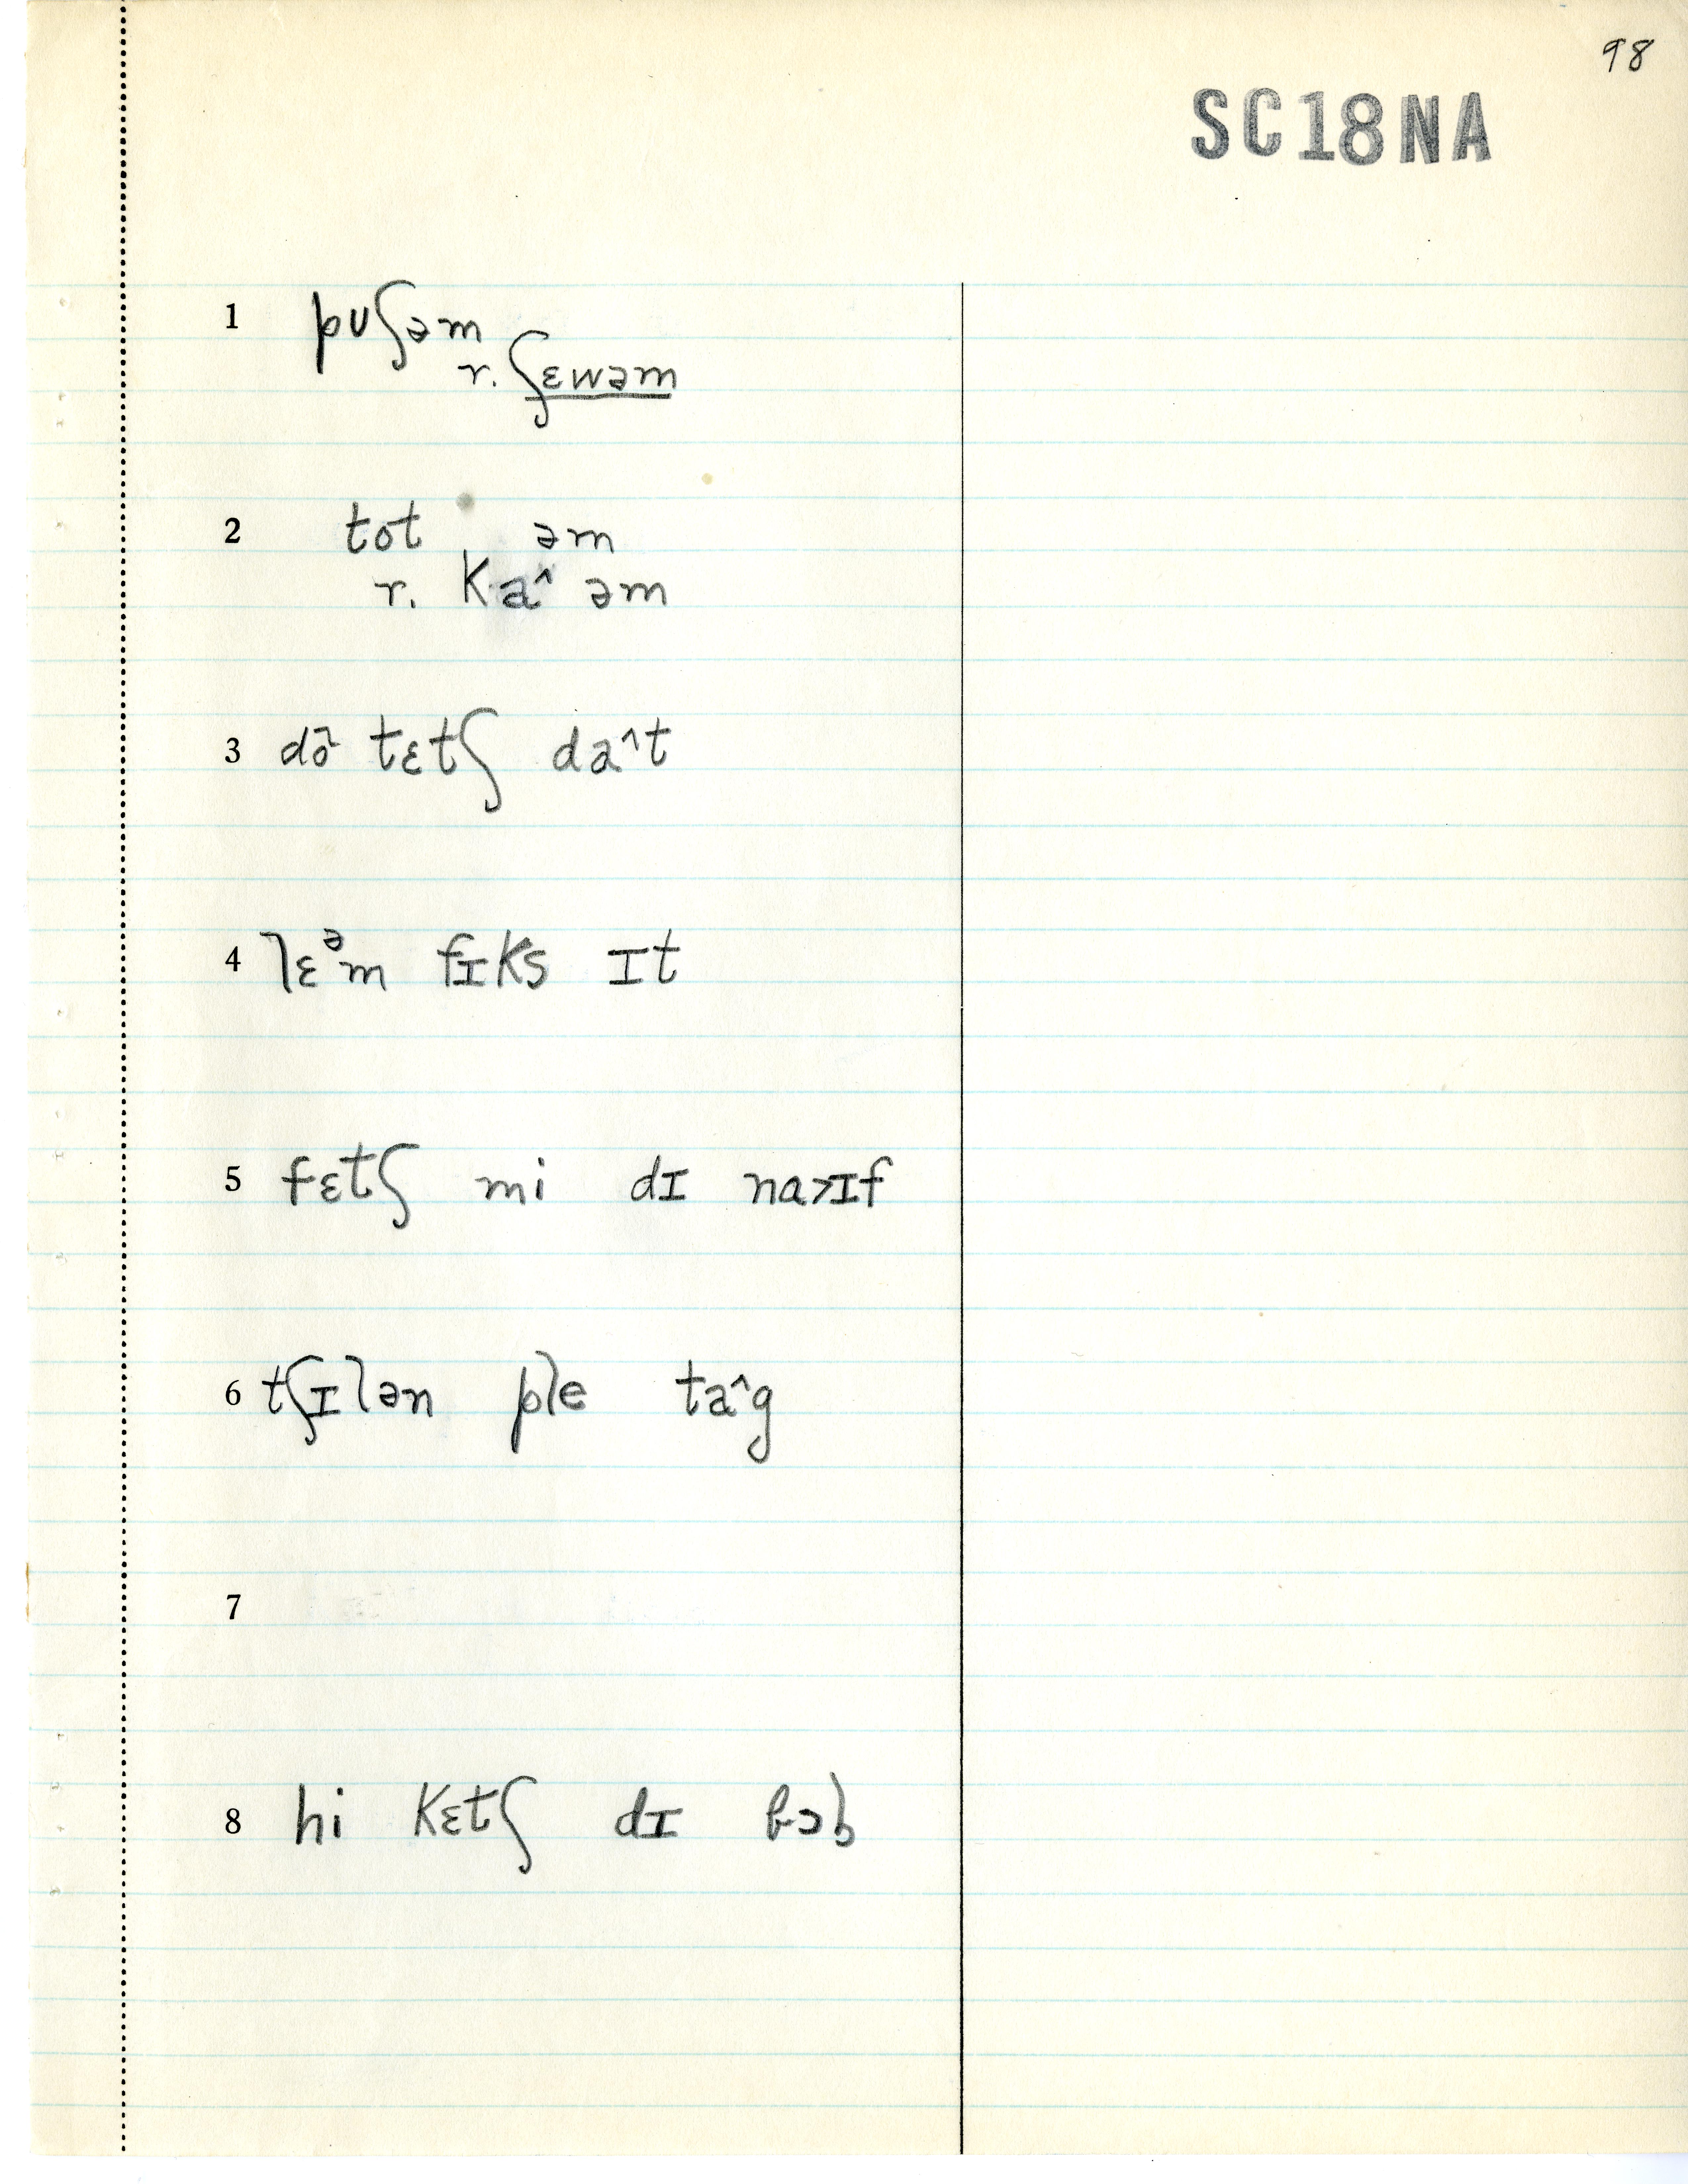 98
SC18NA
1 pʊʃəm
r. ʃɛwəm
2 tot əm
r. ka^ əm
3 dõ tɛtʃ da^t
4 lɛᵊm fɪks ɪt
5 fɛtʃ mi dɪ na>ɪf
6 tʃɪlən ple ta^g
7
8 hi kɛtʃ dɪ bɔb